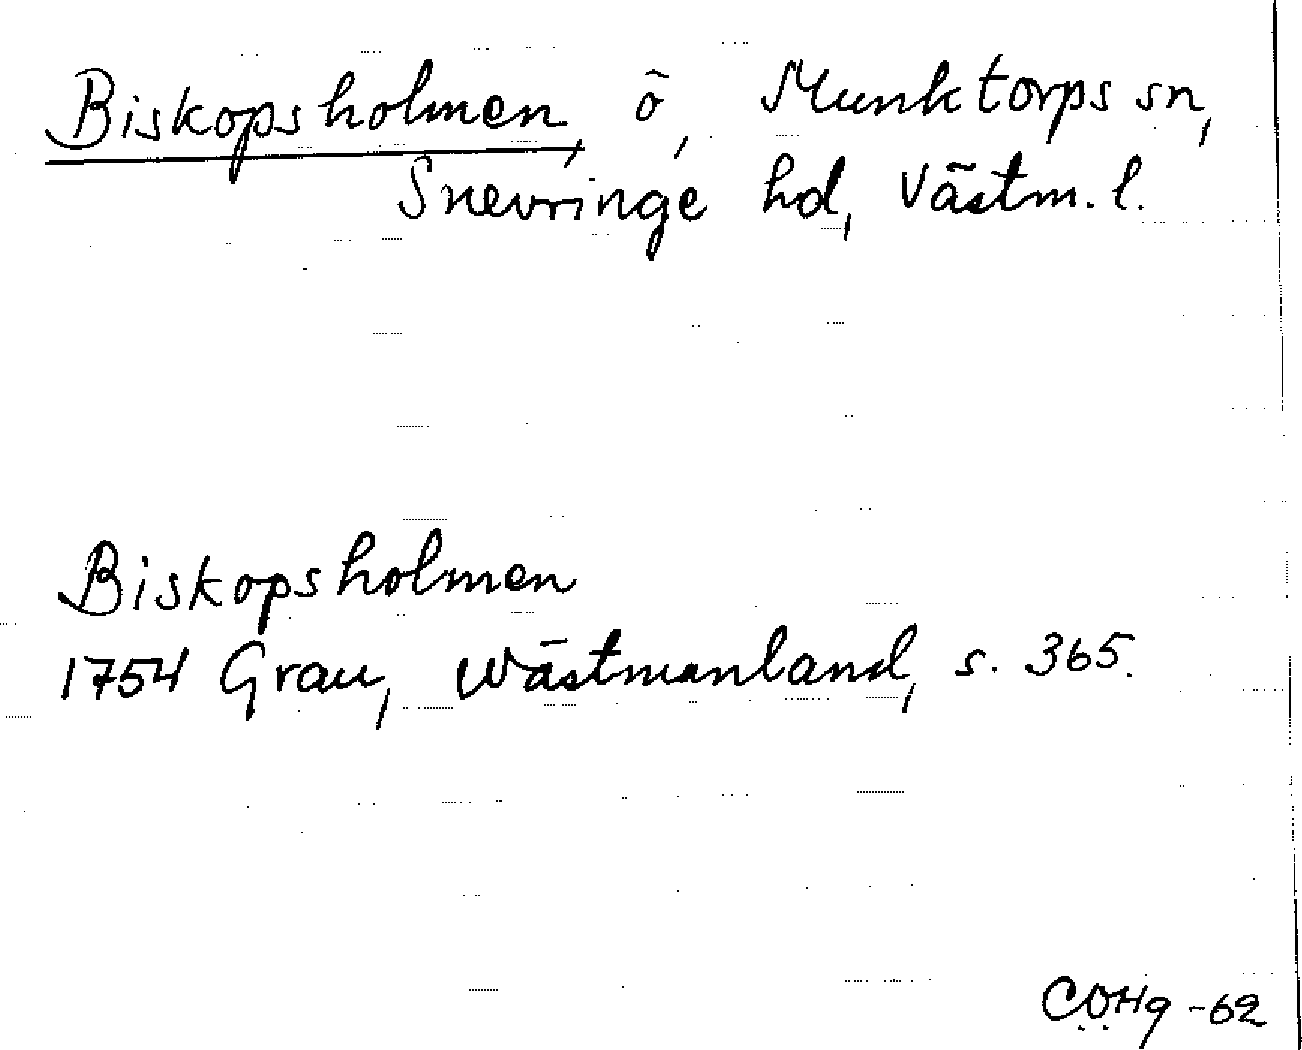 Biskopsholmen, ö, Munktorps sn,
Snevringe hd, Västm. l.
Biskopsholmen
1754 Grau, Wästmanland, s. 365.
CÖHg -62